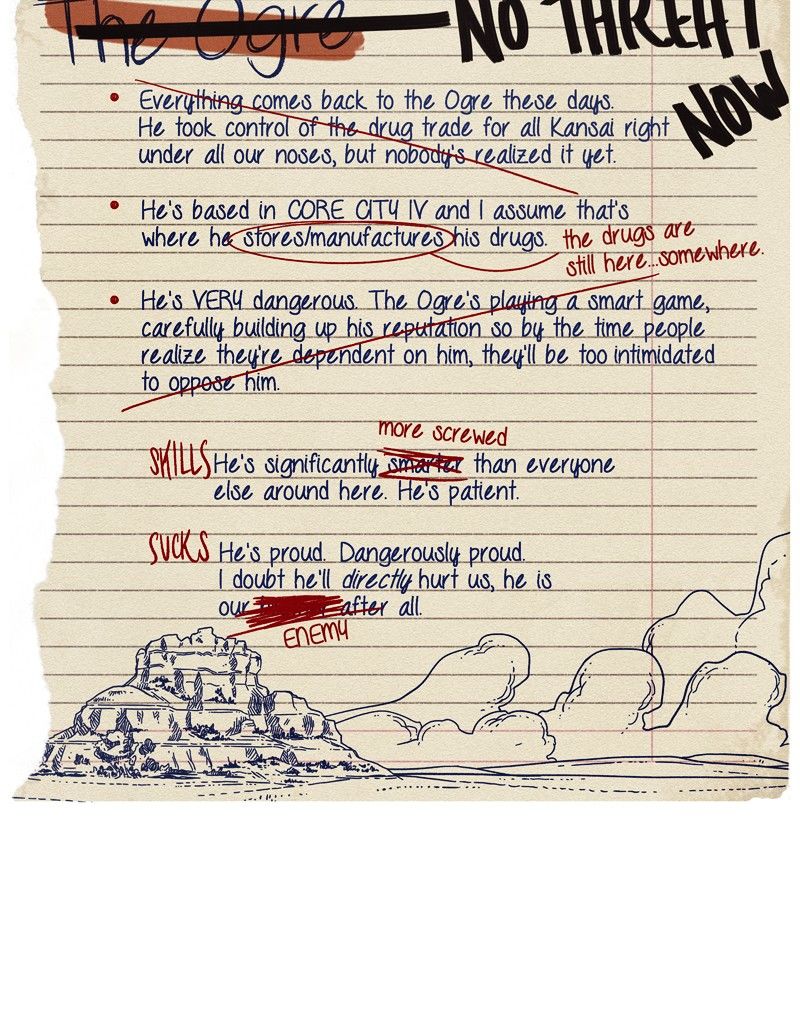 The Ogre NO THREAT
NOW
Everything comes back to the Ogre these days.
He took control of the drug trade for all Kansai right
under all our noses, but nobody's realized it yet.
He's based in CORE CITY IV and I assume that's
where he stores/manufactures his drugs.
the drugs are
still here...somewhere.
He's VERY dangerous. The Ogre's playing a smart game,
carefully building up his reputation so by the time people
realize they're dependent on him, they'll be too intimidated
to oppose him.
more screwed
SKILLS He's significantly smarter than everyone
else around here. He's patient.
SUCKS He's proud. Dangerously proud.
I doubt he'll directly hurt us, he is
our after all.
ENEMY